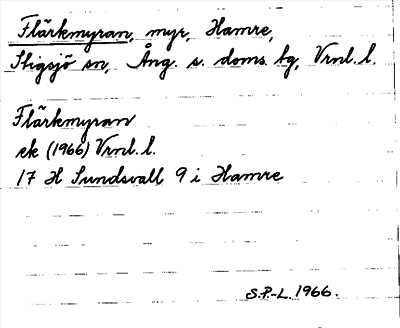 Flärkmyran, myr, Hamre,
Stigsjö sn, Ång. s. doms. tg, Vrnl. l.
Flärkmyran
ek (1966) Vrnl. l.
17 H Sundsvall 9 i Hamre
S.P.-L. 1966.